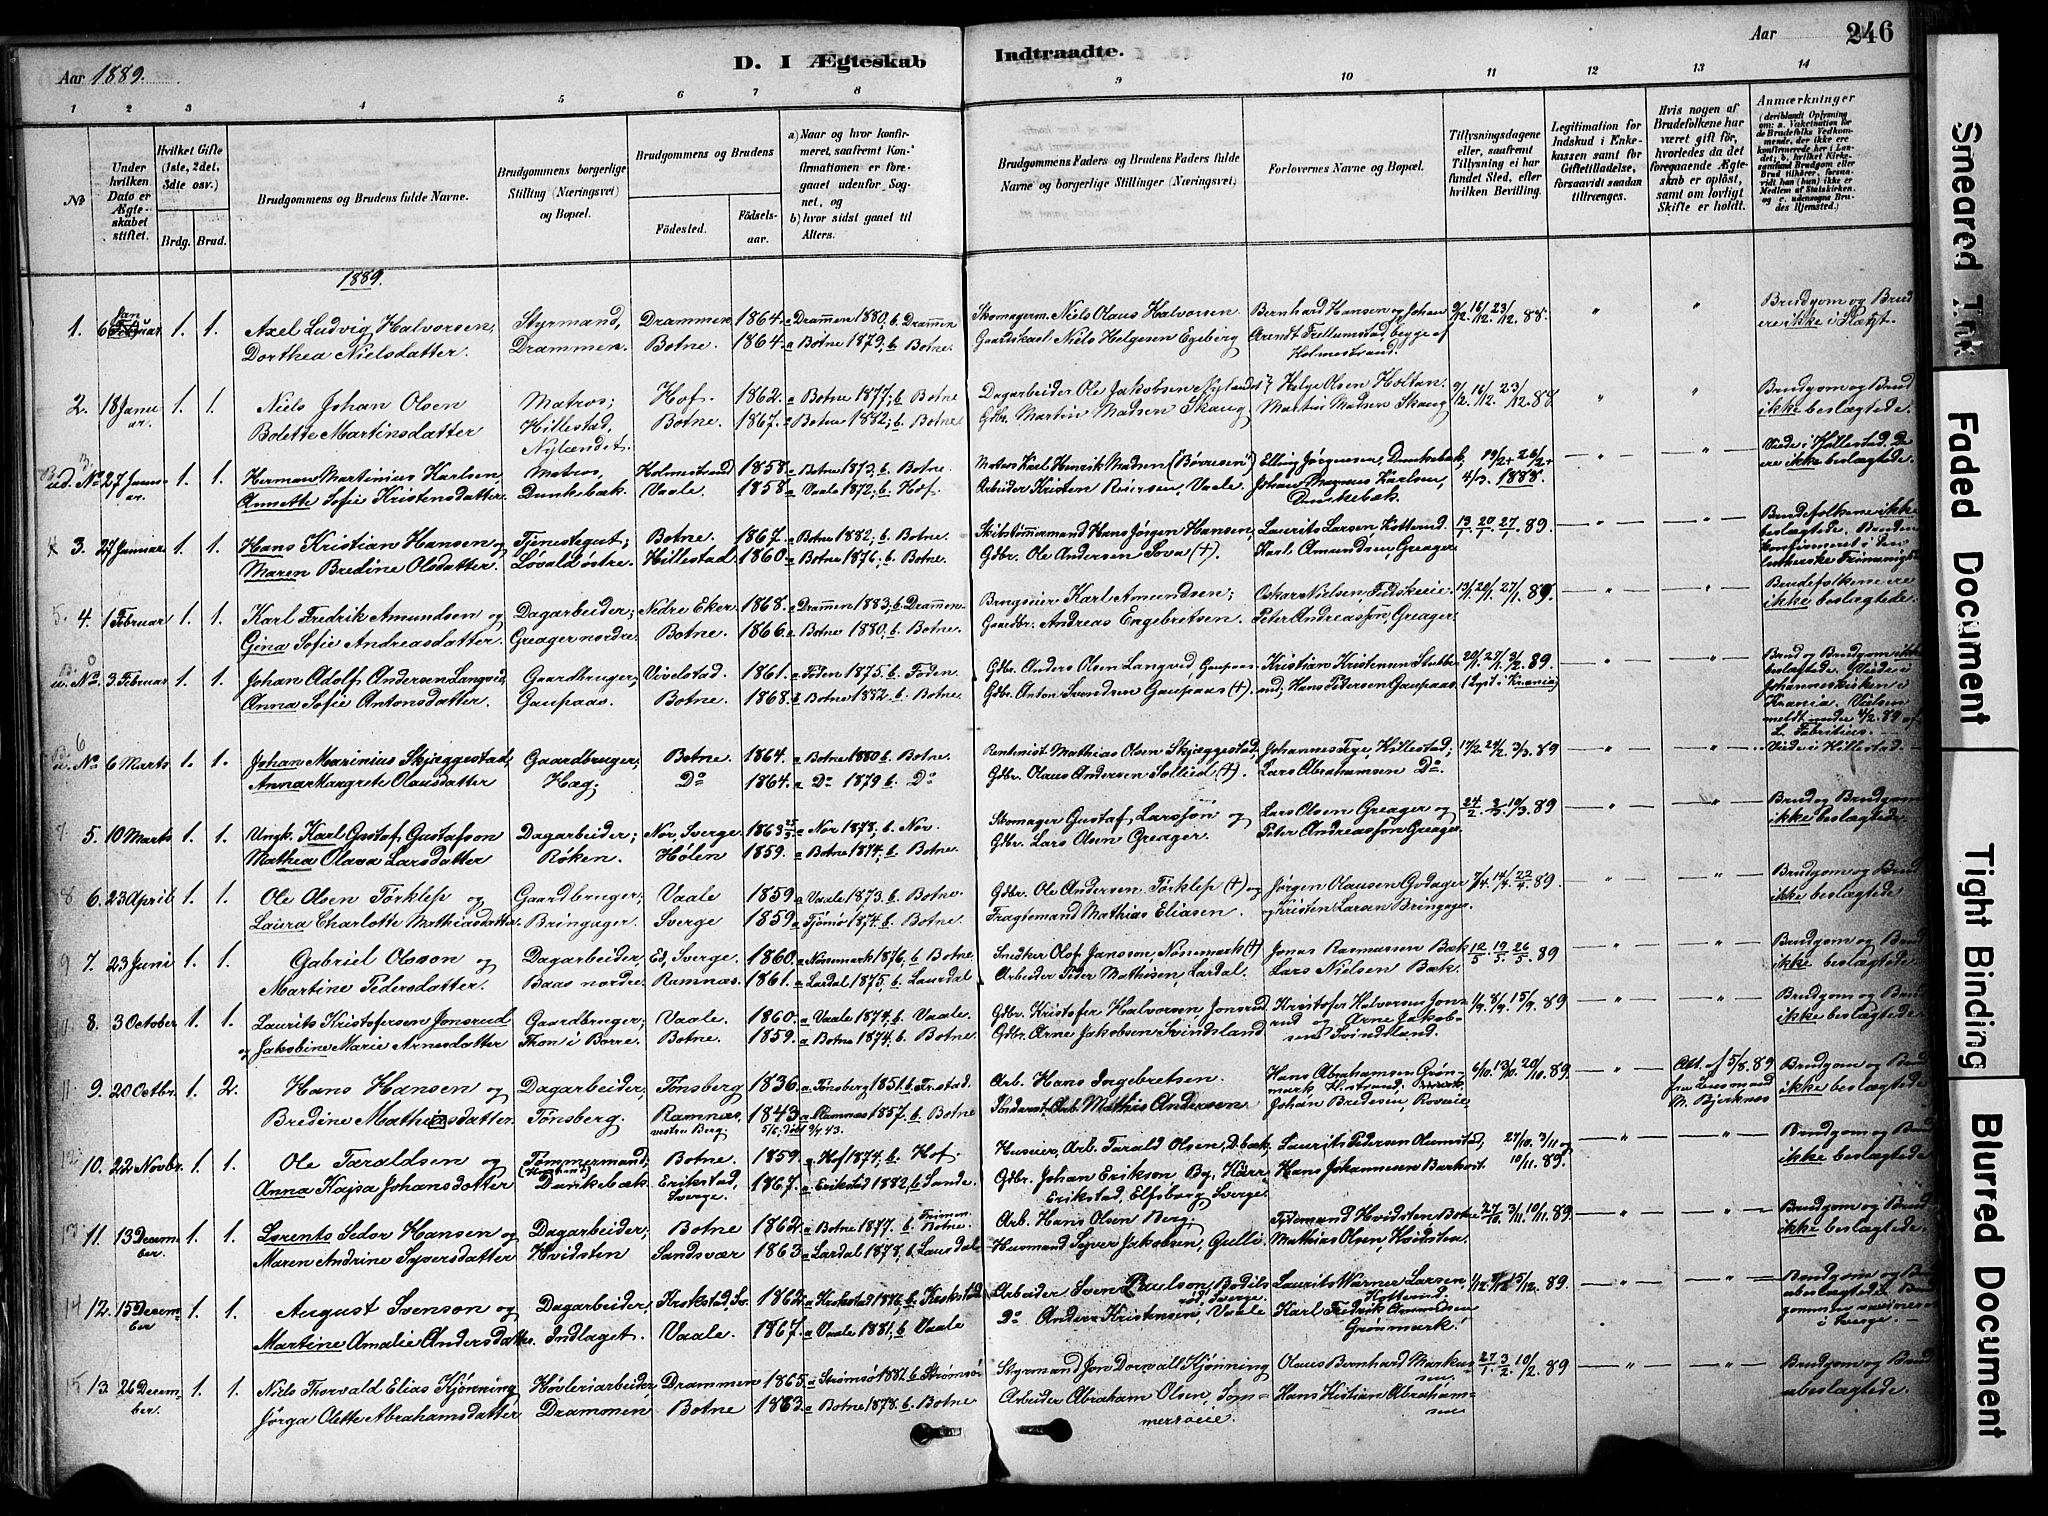 Aar 1889.
D. I Ægteskab Indtraadte.
Aar 246
1 2 3 4 5 6 7 8 9 10 11 12 13 14
No
Under hvilken Dato er Ægteskabet stiftet.
Hvilket Gifte (1ste, 2det, 3die osv.)
Brdg. Brud.
Brudgommens og Brudens fulde Navne.
Brudgommens borgerlige Stilling (Næringsvei) og Bopæl.
Brudgommens og Brudens
Födested. Födselsaar.
a) Naar og hvor konfirmeret, saafremt Konfirmationen er foregaaet udenfor Sognet, og b) hvor sidst gaaet til Alters.
Brudgommens Faders og Brudens Faders fulde Navne og borgerlige Stillinger (Næringsvei)
Forlovernes Navne og Bopæl.
Tillysningsdagene eller, saafremt Tillysning ei har fundet Sted, efter hvilken Bevilling.
Legitimation for Indskud i Enkekassen samt for Giftetilladelse, forsaavidt saadan tiltrænges.
Hvis nogen af Brudefolkene har været gift för, hvorledes da det foregaaende Ægteskab er oplöst, samt om lovligt Skifte er holdt.
Anmærkninger (deriblandt Oplysning om: a. Vakcination for de Brudefolks Vedkommende, der ikke ere konfirmerede her i Landet; b. hvilket Kirkesamfund Brudgom eller Brud tilhörer, forsaavidt han (hun) ikke er Medlem af Statskirken, og c. udensogns Brudes Hjemsted.)
1889.
1. 6 Jan 1. 1. Axel Ludvig Halvorsen, Styrmand, Drammen 1864. a Drammen 1880, b Drammen Skomagerm. Niels Olaus Halvorsen Bernhard Hansen og Johan 9/12. 16/12. 23/12. 88. " " Brudgom og Brud
Dorthea Nielsdatter. Drammen. Botne. 1864. a Botne 1879, b Botne. Gaardskarl Niels Helgesen Egeberg Arendt Frellumstad, begge af Holmestrand. ere ikke i Slægt.
2. 18 Januar. 1. 1. Niels Johan Olsen Matros; Hof. 1862. a Botne 1877; b Botne Dagarbeider Ole Jakobsen Nylandet Helge Olsen Holtan. 9/12. 16/12. 23/12. 88 " " Brudgom og Brud
Bolette Martinsdatter Hillestad, Nylændet. Botne. 1867. a Botne 1882; b Botne Gbr. Martin Madsen Skaug Martin Madsen Skaug ikke beslægtede.
3. No 27 Januar. 1. 1. Herman Martinius Karlsen, Matros, Holmstrand 1858. a Botne 1873. b Botne. Matros Karl Henrik Madsen (Børresen) Elling Jørgensen, Dunkebæk, 19/2 + 26/2 + " " Viede i Hillestad. De
Annette Sofie Kristensdatter. Dunkebæk. Vaale. 1858 a Vaale 1872; b Hof. Arbeider Kristen Reiersen, Vaale. Johan Magnus Karlsen, Dunkebæk. 4/3. 1888. ere ikke beslægtede.
3. 27 Januar 1. 1. Hans Kristian Hansen og Tjenestegut; Botne. 1867. a Botne 1882; b Botne. Skibstømmermand Hans Jørgen Hansen, Laurits Larsen, Kotterud. 13/1. 20/1. 27/1. 89. " " Brudefolkene ikke beslægtede. Bruden
Maren Bredine Olsdatter. Løvald østre. Hillestad 1860 a Botne 1876; b Botne. Gdbr. Ole Andersen Sova (+). Karl Amundsen Greager konfirmeret i den lutherske Frimenighed
5. 4. 1 Februar 1. 1. Karl Fredrik Amundsen og Dagarbeider; Nedre Eker 1868. a Drammen 1883; b Drammen Brugseier Karl Amundsen; Oskar Nielsen Fedskeie. 13/1. 20/1. 27/1. 89. " " Brudefolkene ere
Gina Sofie Andreasdatter. Greager nordre. Botne. 1866. a Botne 1880; b Botne. Gaardbr. Andreas Engebretsen Peter Andreassøn, Greager. ikke beslægtede.
No 3. Februar 1. 1. Johan Adolf Andersen Langvid Gaardbruger; Vivelstad. 1861. a Foden 1875. b Foden. Gdbr. Anders Olsen Langvid, Gaupaas Kristian Kristensen Stubbe 20/1. 27/1. 3/2. 89. " " Brud og Brudgom ikke beslægtede. Viede i
Anna Sofie Antonsdatter. Gaupaas. Botne. 1868. a Botne 1882. b Botne. Gdbr. Anton Svendsen Gaupaas (+). rud; Hans Pedersen Gaupaas. (Lyst i Krania) Johanneskirken i Krania. Vielsen meldt under 4/2. 89 af L. Fabritius.
6 No 6 Marts 1. 1. Johan Marinius Skjæggestad, Gaardbruger; Botne 1864. a Botne 1880 b Botne. Rentenist. Mathias Olsen Skjæggestad, Johannes Teye, Hillestad; 17/2. 24/2. 3/3. 89 " " Viede i Hillestad
Anna Margrete Olausdatter Hæg. Do 1864. a Do 1879 b. Do Gdbr. Olaus Andersen Sollied (+). Lars Abrahamsen Do
7 5. 10 Marts 1. 1. Ungk. Karl Gustaf Gustafson Dagarbeider; Nor, Sverge. 1863 25/3 a Nor 1878; b Nor. Skomager Gustaf Larssøn og Lars Olsen Greager og 24/2. 3/3. 10/3. 89 " " Brud og Brudgom
Mathea Olava Larsdatter Røken. Hølen 1859. a Botne 1874; b Botne. Gdbr. Lars Olsen Greager. Peter Andreassøn Greager. ikke beslægtede.
8 6. 23 April 1. 1. Ole Olsen Tørklep og Gaardbruger; Vaale 1859 a Vaale 1873. b Botne. Gdbr. Ole Andersen Tørklep (+) og Jørgen Olausen Godager 7/4. 14/4. 22/4. 89. " " Brudgom og Brud
Laura Charlotte Mathiasdatter. Bringager. Sverge 1859. a Tjømø 1874. b Botne. Fragtemand Mathias Eliasen. og Kristen Larsen Bringager. ikke beslægtede.
9 7. 23 Juni 1. 1. Gabriel Olsson og Dagarbeider Ed, Sverge. 1860. a Nønmark 1876, b Botne. Snedker Olof Jansson, Nønemark (+) Jonas Rasmussen Bæk 12/5. 19/5. 26/5. 89 " " Brudgom og Brud
Martine Pedersdatter. Baas nordre. Ramnæs. 1861. a Lardal 1875, b Laurdal Arbeider Peder Mathisen, Lardal. Lars Nielsen Bæk. ikke beslægtede.
8. 3 October 1. 1. Laurits Kristofersen Jonsrud Gaardbruger; Vaale. 1860. a Vaale 1874, b Vaale. Gdbr. Kristofer Halvorsen, Jonsrud Kristofer Halvorsen Jons- 1/9. 8/9. 15/9. 89 " " Brudgom og Brud
og Jakobine Marie Arnesdatter Thon i Borre. Botne. 1859. a Botne 1874; b Botne. Gdbr. Arne Jakobsen Svindsland rud og Arne Jakobsen Svindsland. ikke beslægtede.
11. 9. 20 Octbr. 1. 2. Hans Hansen og Dagarbeider, Tønsberg 1836 a Tønsberg 1851. b Fr.stad. Arb. Hans Ingebretsen. Hans Abrahamsen Grønmark, 6/10. 13/10. 20/10. 89. " Att. af 5/8. 89 fra Lensmand M. Bjerknes Brudgom og Brud
Bredine Mathiasdatter. Tønsberg. Ramnæs, vestre Berg. 1843 5/5, døbt 9/4. 43. a Ramnæs 1857. b Botne Arb. Mathis Andersen Johan Bredesen, Roveie ikke beslægtede.
10. 22 Novbr. 1. 1. Ole Taraldsen og Tømmermand; Botne. 1859. a Hof 1874; b Hof. Huseier, Arb. Tarald Olsen, D.bæk, Laurits Pedersen Aumstad, 27/10. 3/11 og " " Brudgom og Brud
Anna Kajsa Johansdatter Dunkebæk. Erikstad, Sverge. 1867. a Erikstad 1882, b Sande. Gdbr. Johan Erikson By, Kärr Erikstad, Elfsborg, Sverge. Hans Johannesen Barkost. 10/11. 89. ikke beslægtede.
11. 13 December. 1. 1. Lorents Sedor Hansen og Dagarbeider, Botne 1862. a Botne 1877. b Frimen. Botne. Arb. Hans Olsen Berg. Tidemand Hvidsten, Botne 27/10. 3/11. 10/11. 89. " " Brudgom og Brud
Maren Andrine Syversdatter Hvidsten Sandsvær 1863 a Lardal 1878, b Laurdal Husmand Syver Jakobsen, Gulli. Mathias Olsen, Hvidsten. ikke beslægtede.
14 12. 15 December 1. 1. August Svenson og Dagarbeider, Krokstad, Sv. 1862. a Krokstad 1876, b Krokstad Arbeider Sven Paulson, Bodils Sverge. Laurits Warner Larsen, Kotterud. 1/12. 8/12 15/12. 89 " " Brudgom og Brud ubeslægtede.
Martine Amalie Andersdatter. Indlaget. Vaale. 1867. a Vaale 1881, b Vaale Do Anders Kristensen, Vaale Karl Fredrik Amundsen Grønmark. i Sverge.
15 13. 26 December. 1. 1. Niels Thorvald Elias Kjønning Høvleriarbeider Drammen 1865. a Strømsø 1882 b Strømsø Styrmand Jon Dorvall Kjønning Olaus Bernhard Markussen 27/1. 3/2. 10/2. 89 " " Brudgom og Brud
Jørga Olette Abrahamsdatter Drammen Botne. 1863. a Botne 1878. b Botne Arbeider Abraham Olsen, Sommersøeie. Hans Kristian Abrahamsen ubeslægtede.
Smeared Ink
Faded Document
Tight Binding
Blurred Document